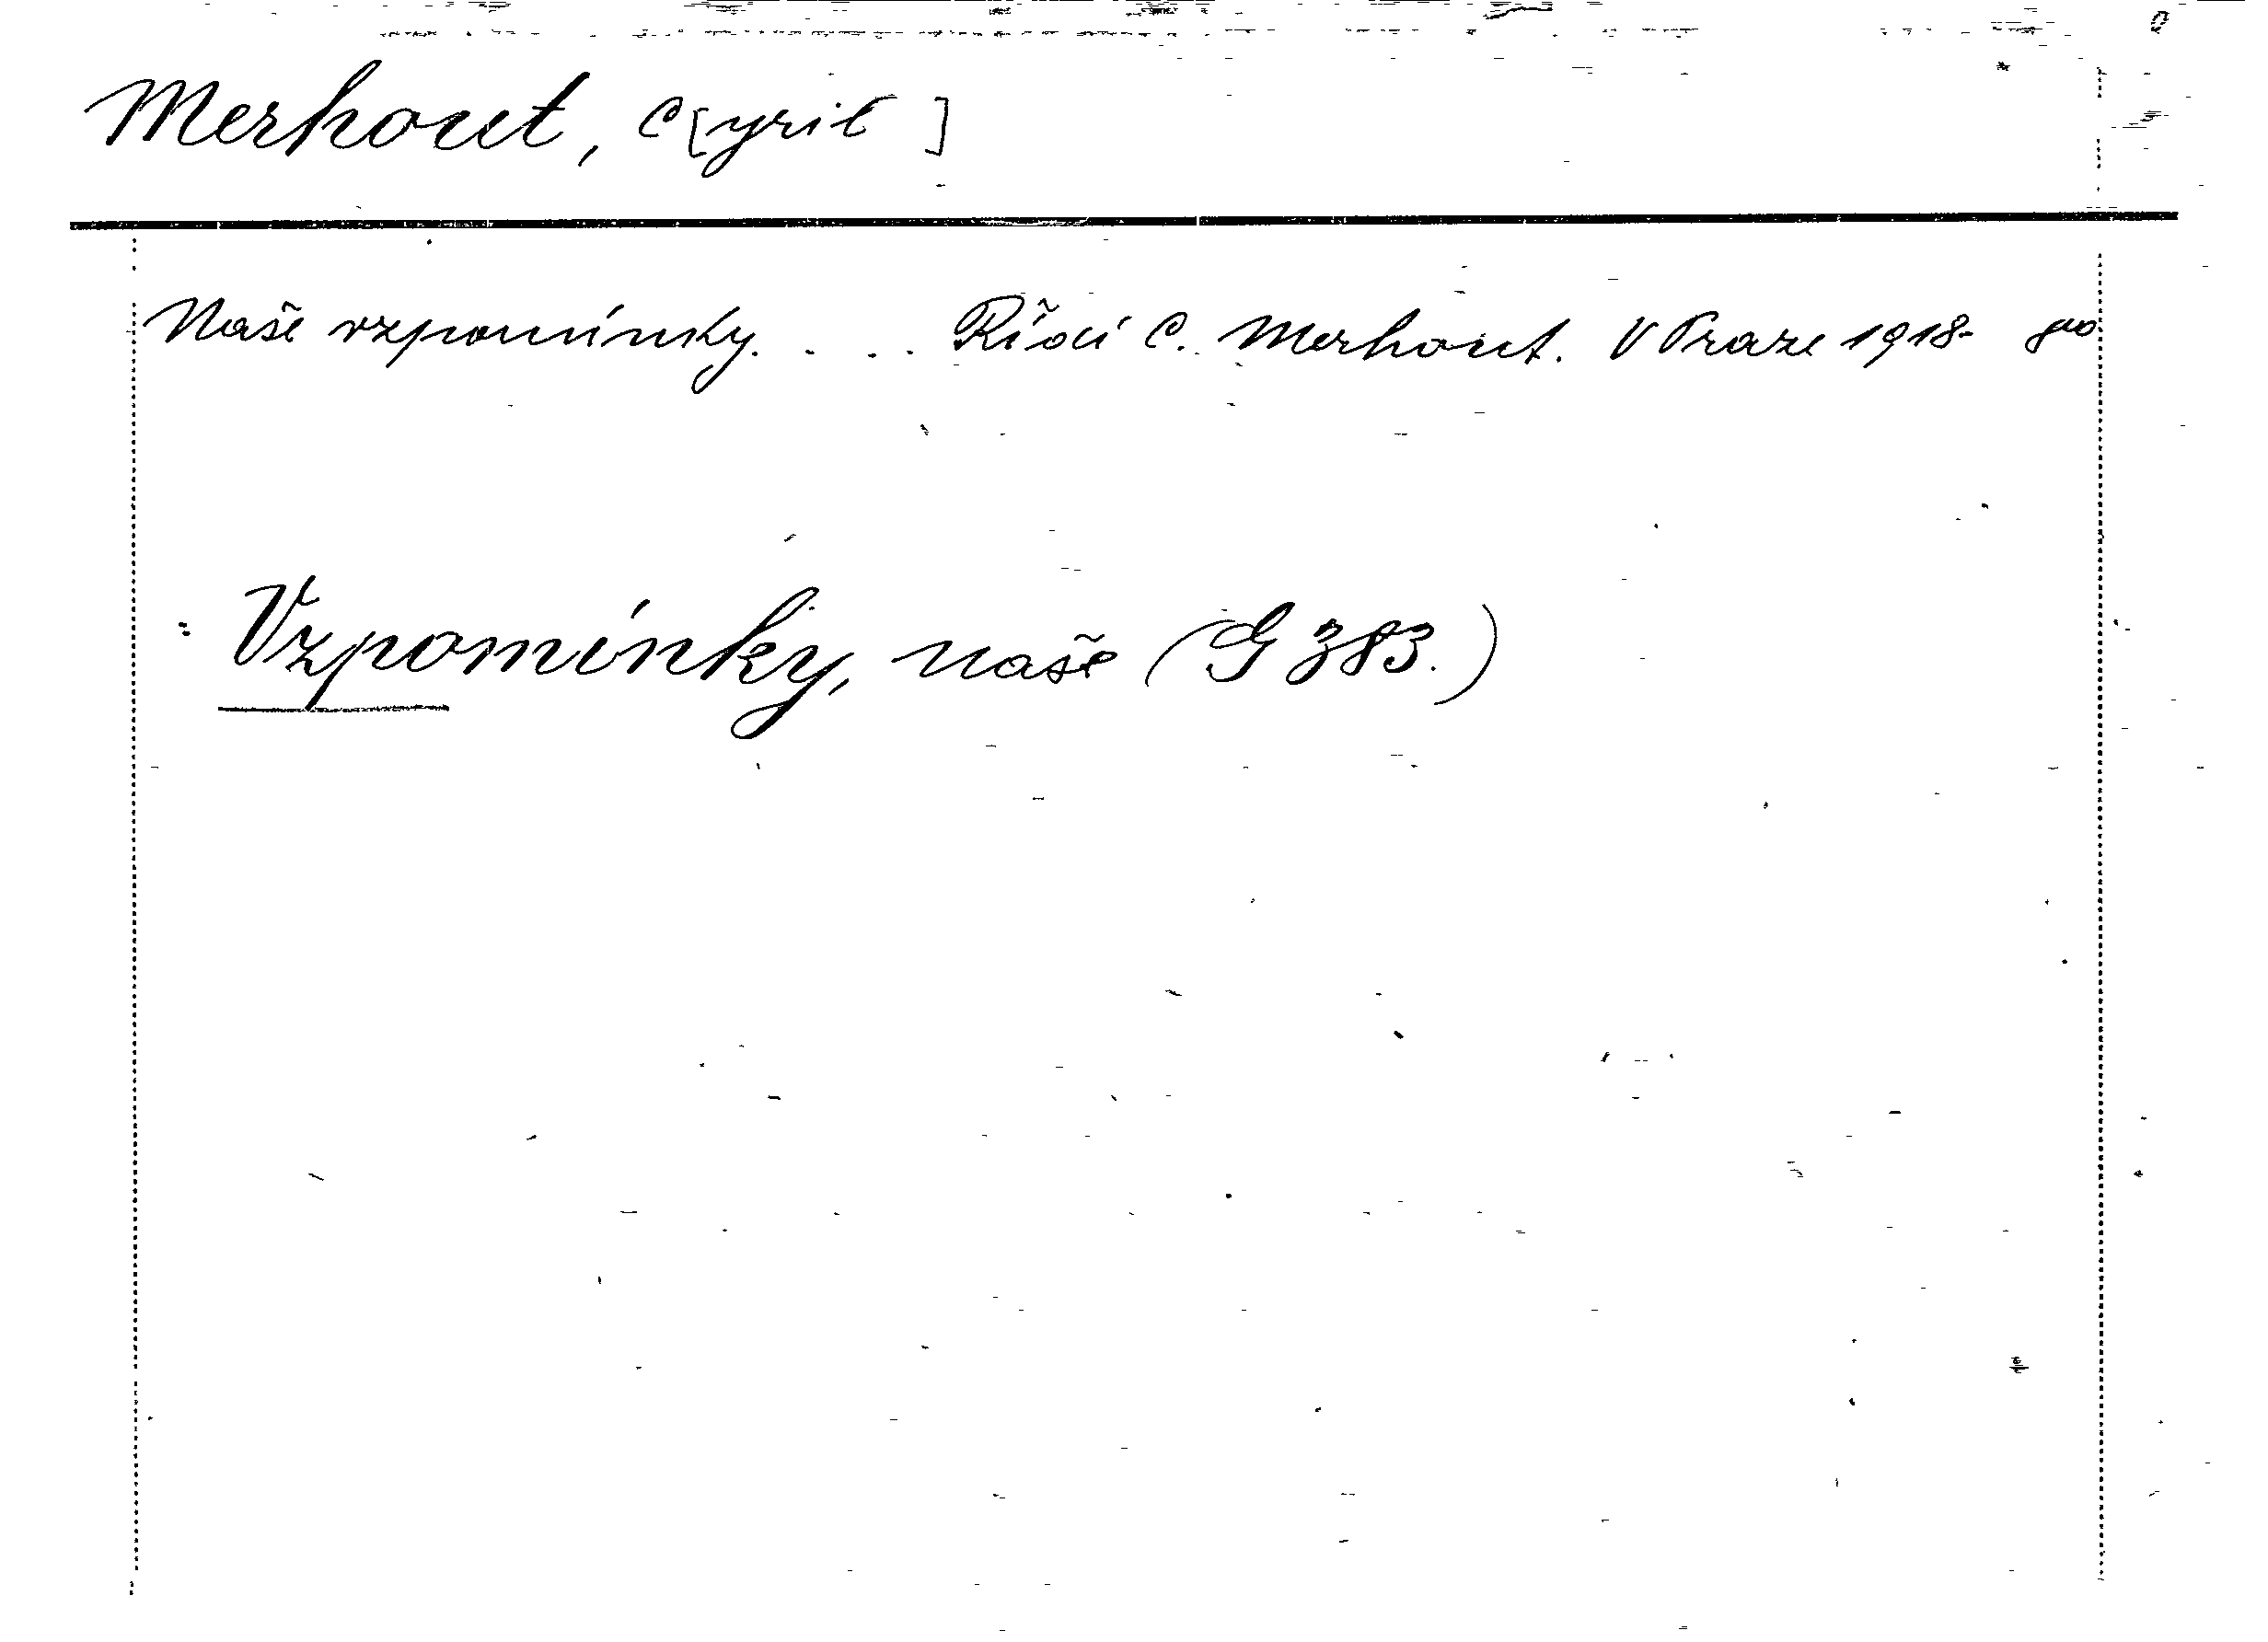 Merhout, C[yril]
Naše vzpomínky. . . . Řídí C. Merhout. V Praze 1918- 8vo
: Vzpomínky, naše (G 383.)